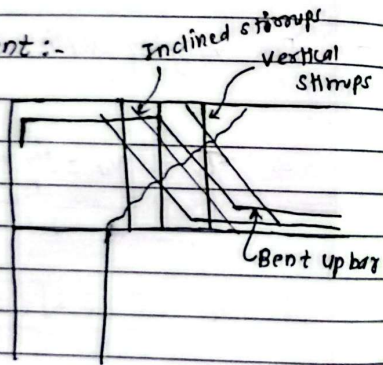 nt :-
Inclined stirrups
vertical
stirrups
Bent up bar